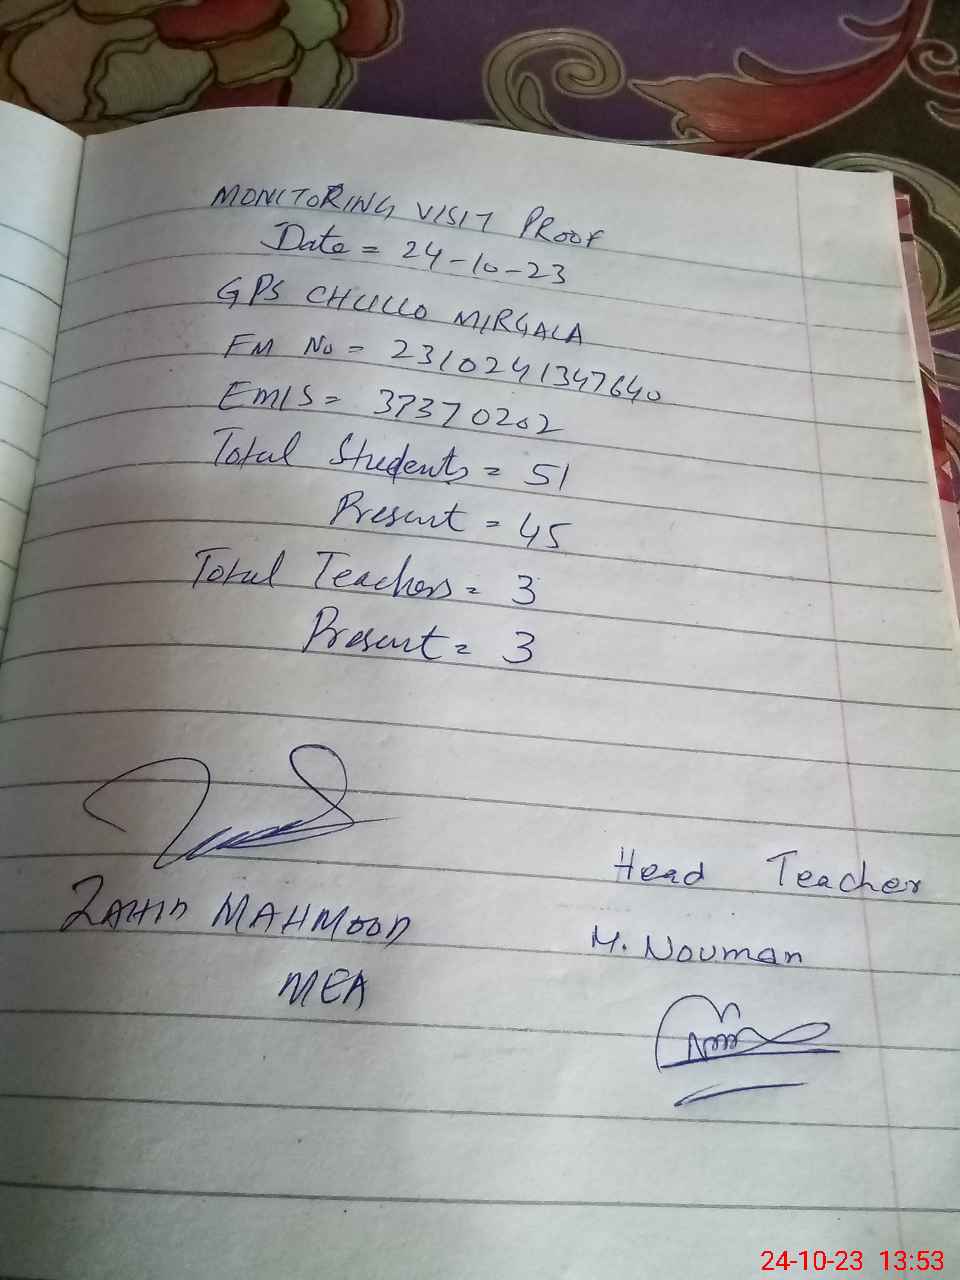 MONITORING VISIT PROOF
Date = 24-10-23
GPS CHULLO MIRGALA
FM No = 2310241347640
EMIS = 37370202
Total Students = 51
Present = 45
Total Teachers = 3
Present = 3
Head Teacher
ZAHID MAHMOOD
M. Nouman
MEA
24-10-23 13:53